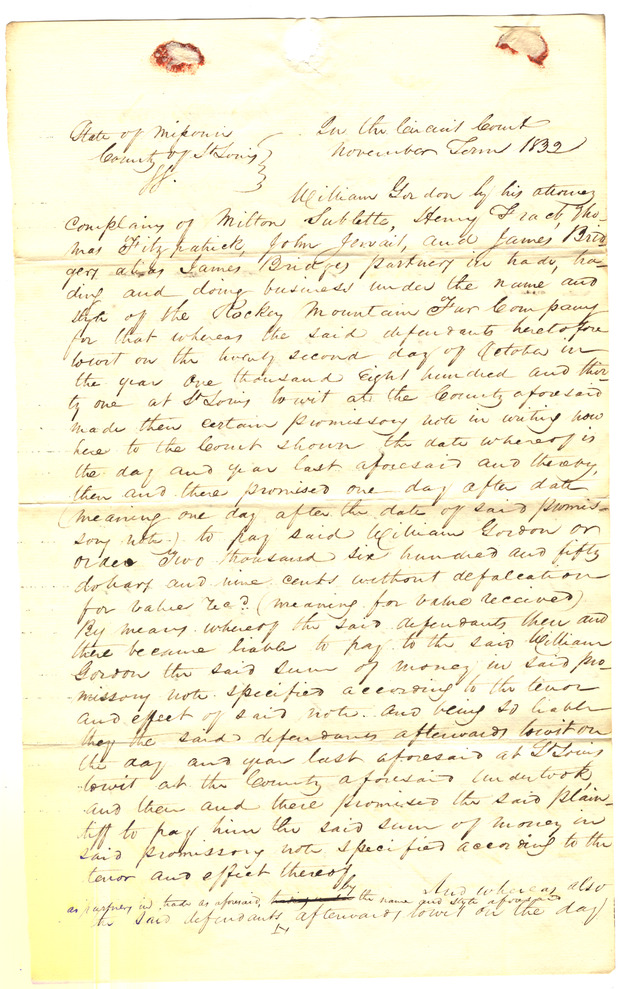 State of Missouri
County of St Louis
ss.
In the Circuit Court
November Term 1832
William Gordon by his attorney
complains of Milton Sublette, Henry Fraeb, Tho-
mas Fitzpatrick, John Jervait, and James Brid-
gers alias James Bridges partners in trade, tra-
ding and doing business under the name and
style of the Rockey Mountain Fur Company
for that whereas the said defendants heretofore
towit on the twenty second day of October in
the year one thousand Eight hundred and thir-
ty one at St Louis towit at the County aforesaid
made their certain promissory note in writing now
here to the Court shown the date whereof is
the day and year last aforesaid and thereby
then and there promised one day after date
(meaning one day after the date of said promis-
sory note) to pay said William Gordon or
order Two thousand six hundred and fifty
dollars and nine cents without defalcation
for value recd (meaning for value received)
By means whereof the said defendants then and
there became liable to pay to the said William
Gordon the said sum of money in said pro-
missory note specified according to the tenor
and effect of said note. And being so liable
they the said defendants afterwards towit on
the day and year last aforesaid at St Louis
towit at the County aforesaid undertook
and then and there promised the said plain-
tiff to pay him the said sum of money in
said promissory note specified according to the
tenor and effect thereof
And whereas also
as partners in trade as aforesaid, by the name and style aforesaid
the said defendants afterwards towit on the day